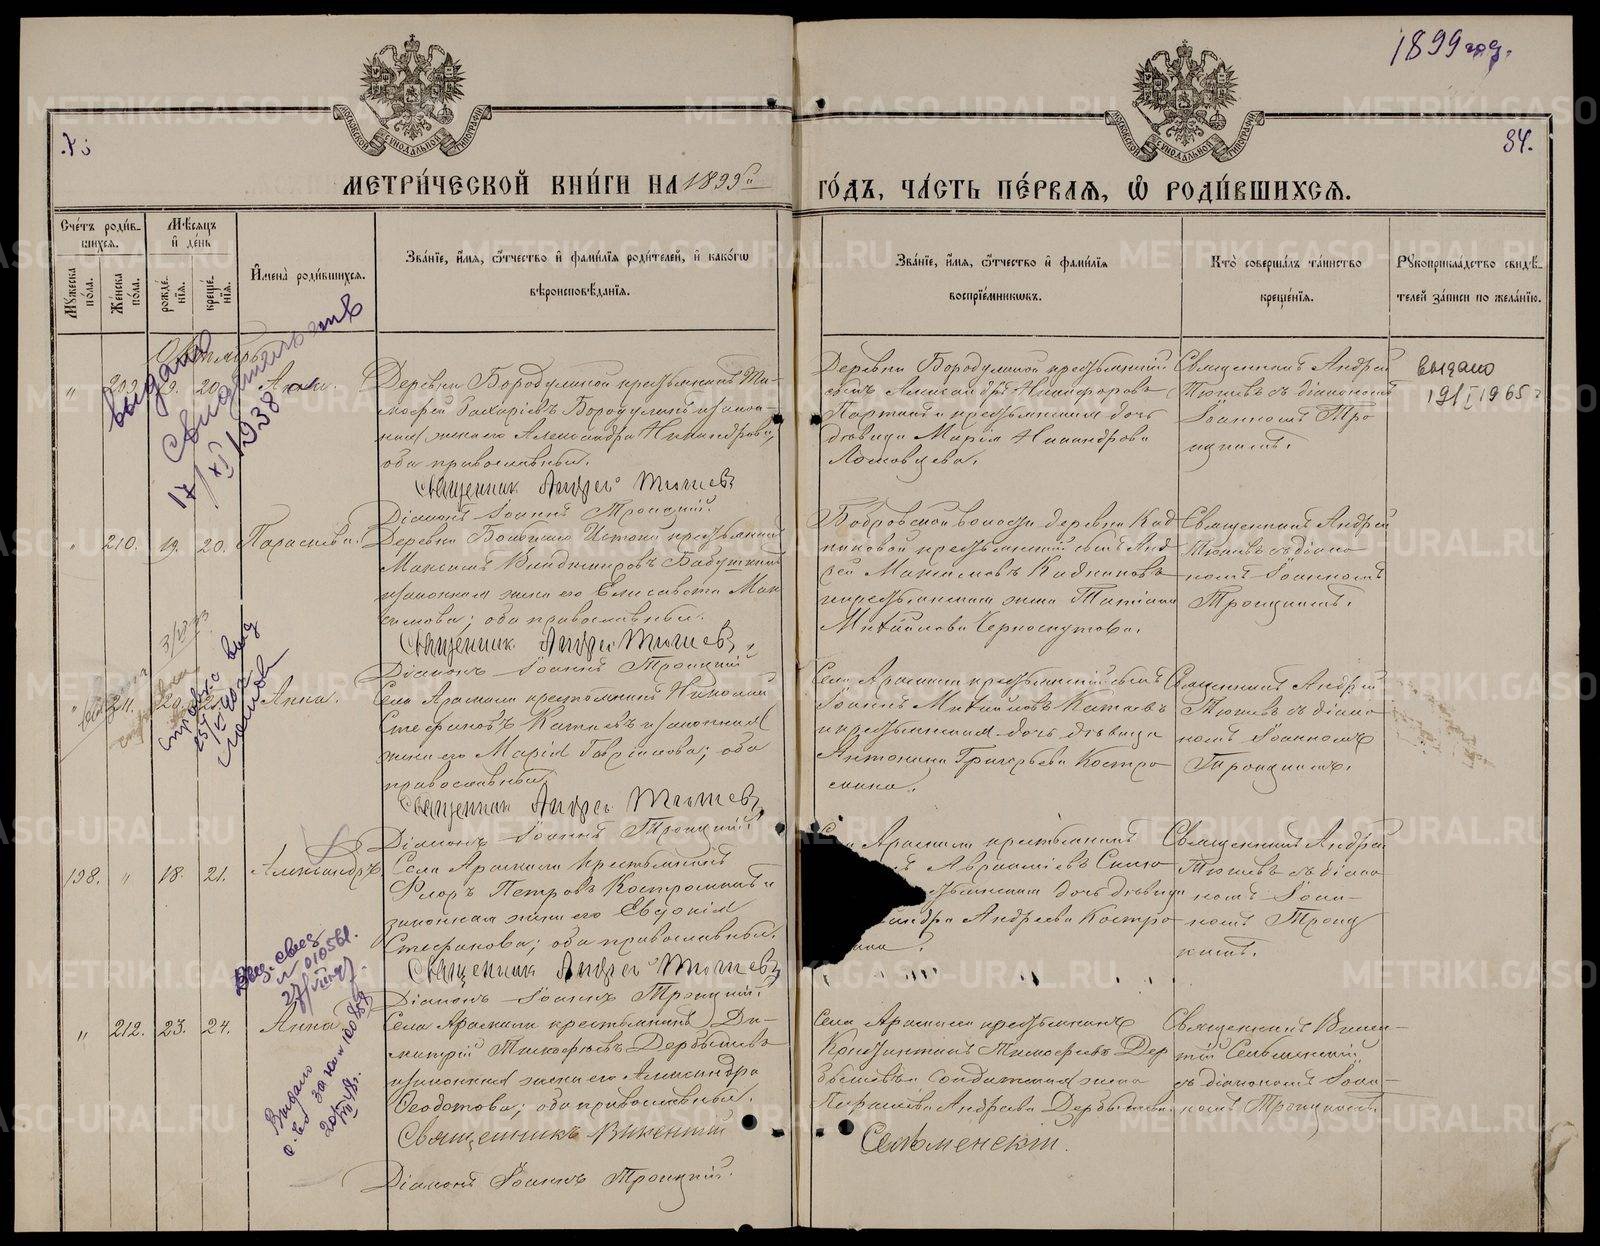 1899 год.
84.
МОСКОВСКОЙ СѴНОДАЛЬНОЙ ТИПОГРАФІИ
МОСКОВСКОЙ СѴНОДАЛЬНОЙ ТИПОГРАФІИ
МЕТРИ́ЧЕСКОЙ КНИ́ГИ НА 1899й ГО́ДЪ, ЧА́СТЬ ПЕ́РВАЯ, Ѡ҆ РОДИ́ВШИХСЯ.
Сче́тъ роди́в-
шихся.
Мꙋжеска по́ла.
Же́нска по́ла.
Мѣ́сяцъ
и҆ де́нь
рожде́-
нїя.
креще́-
нїя.
И҆мена̀ роди́вшихся.
Зва́нїе, и҆́мя, ѻ҆́тчество и҆ фами́лїя роди́телей, и҆ како́гѡ
вѣроисповѣ́данїя.
Зва́нїе, и҆́мя, ѻ҆́тчество и҆ фами́лїя
воспрїе́мникѡвъ.
Кто̀ соверша́лъ та́инство
креще́нїя.
Рꙋкоприкла́дство свидѣ́-
телей за́писи по жела́нїю.
Октябрь
" 209. 20. Анна.
Деревни Бородулиной крестьянинъ Ти-
мофей Захаріевъ Бородулинъ и закон-
ная жена его Александра Никандрова;
оба православные.
Священник Андрей Тюшев
Діаконъ Іоаннъ Троицкій.
Деревни Бородулиной крестьянский
сынъ Александръ Никифоровъ
и крестьянская дочь
девица Марія Никандрова
Священникъ Андрей
Тюшевъ съ діакономъ
Іоанномъ Тро
ицкимъ.
выдано
19/I 1965 г
выдано
свидетельств
17/XI 1938
" 210. 19. 20. Параскева.
Деревни Большаго Истока крестьянинъ
Максимъ Владиміровъ Бабушкинъ
и законная жена его Елисавета Мак
симова; оба православные.
Священник Андрей Тюшев
Діаконъ Іоаннъ Троицкій
Бобровской волости деревни Кад
никовой крестьянский сынъ Анд
рей Максимовъ Кадниковъ
и крестьянская жена Татіана
Михайлова Черноскутова.
Священникъ Андрей
Тюшевъ съ діако
номъ Іоанномъ
Троицкимъ.
справка
" 211. 20. Анна.
Села Арамили крестьянинъ Николай
Стефановъ Катаевъ и законная
жена его Марія Гаврилова; оба
православные.
Священник Андрей Тюшев
Діаконъ Іоаннъ Троицкій
Села Арамили крестьянский сынъ
Іоаннъ Михайловъ Катаевъ
и крестьянская дочь девица
Антонина Григорьева Костро
мина.
Священникъ Андрей
Тюшевъ съ діако
номъ Іоанномъ
Троицкимъ.
198. " 18. 21. Александръ
Села Арамили крестьянинъ
Флоръ Петровъ Костроминъ и
законная жена его Евдокія
Стефанова; оба православные.
Священник Андрей Тюшев
Діаконъ Іоаннъ Троицкій
Арамили крестьянинъ
Аврамiевъ
крестьянская дочь девица
андра Андреева Костро
мина.
Священникъ Андрей
Тюшевъ съ діако
номъ Іоан-
номъ Троиц
кимъ.
" 212. 23. 24. Анна
Села Арамили крестьянинъ Ди-
митрій Тимофеевъ Дербышевъ
и законная жена его Александра
Феодотова; оба православные.
Священникъ Викентій
Діаконъ Іоаннъ Троицкій.
Села Арамили крестьянинъ
Константинъ Тимофеевъ Дер
бышевъ и солдатская жена
Параскева Андреева Дербышева.
Сельменскій.
Священникъ Викен-
тій Сельменский
съ діакономъ Іоан-
номъ Троицкимъ.
Выдано
METRIKI.GASO-URAL.RU